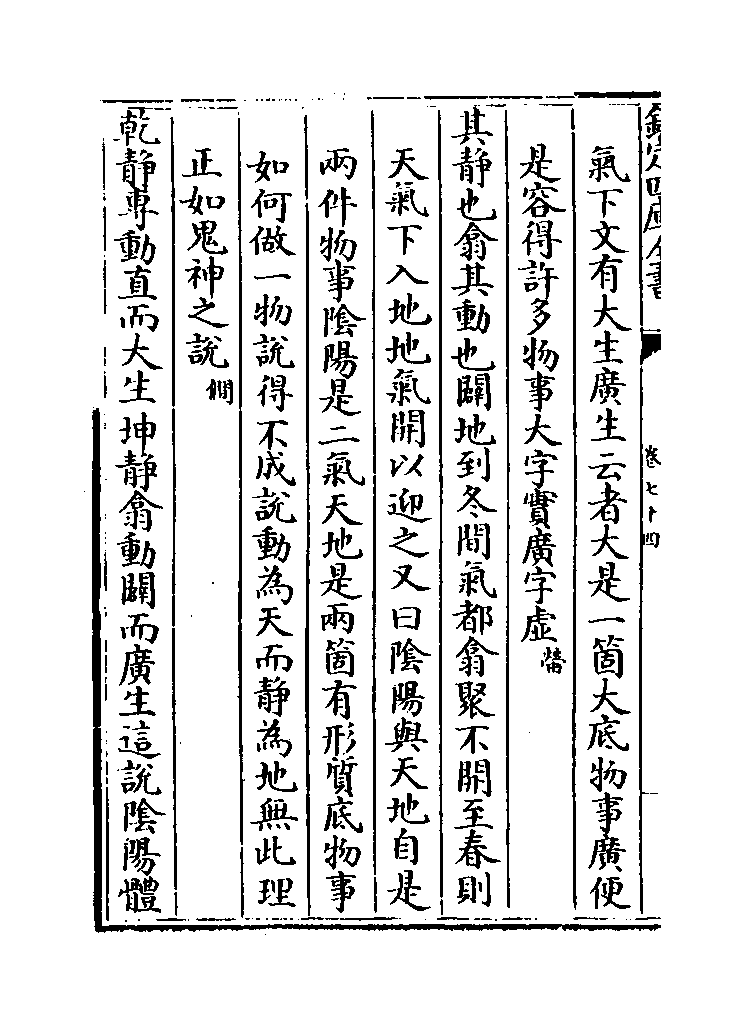 欽定四庫全書
卷七十四
氣下文有大生廣生云者大是一箇大底物事廣便
是容得許多物事大字實廣字虛㽦
其静也翕其動也闢地到冬間氣都翕聚不開至春則
天氣下入地地氣開以迎之又曰陰陽與天地自是
兩件物事陰陽是二氣天地是兩箇有形質底物事
如何做一物說得不成說動為天而静為地無此理
正如鬼神之說僩
乾静專動直而大生坤静翕動闢而廣生這說陰陽體